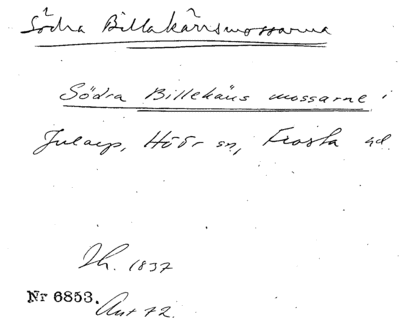 Södra Billakärrsmossarna
Södra Billekärs mossarne i
Jularp, Höör sn, Frosta hd.
Lh. 1837
Nr 6853. Avt 72.